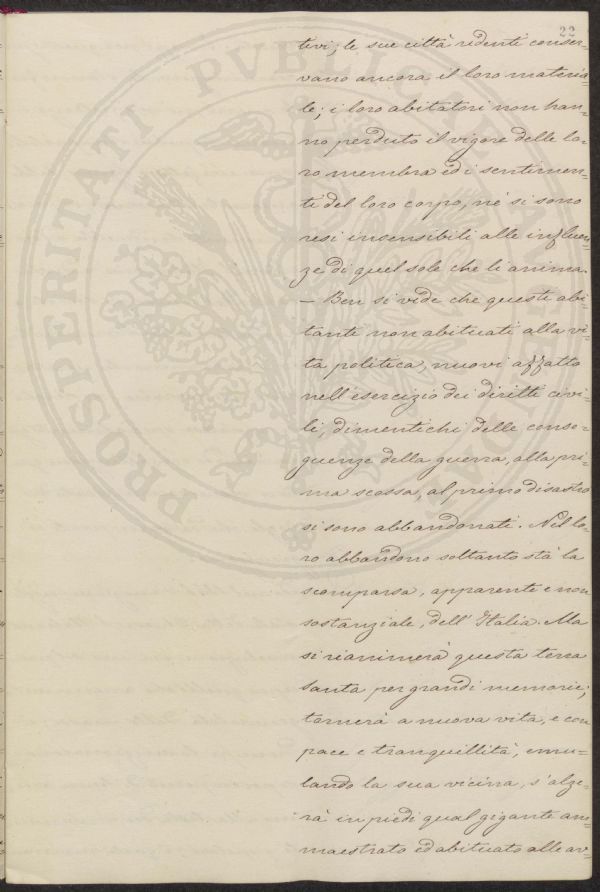 22
tivi; le sue città redente conser-
vano ancora il loro materia-
le; i loro abitatori non han-
no perduto il vigore delle lo-
ro membra ed i sentimen-
ti del loro corpo, nè si sono
resi insensibili alle influen-
ze di quel sole che li anima.
— Ben si vide che questi abi-
tanti non abituati alla vi-
ta politica, nuovi affatto
nell'esercizio dei diritti civi-
li, dimentichi delle conse-
guenze della guerra, alla pri-
ma scossa, al primo disastro
si sono abbandonati. Nel lo-
ro abbandono soltanto stà la
scomparsa, apparente e non
sostanziale, dell'Italia. Ma
si rianimerà questa terra
santa per grandi memorie;
tornerà a nuova vita, e con
pace e tranquillità, emu-
lando la sua vicina, s'alze-
rà in piedi qual gigante am-
maestrato ed abituato alle av-
PROSPERITATI PVBLICAE